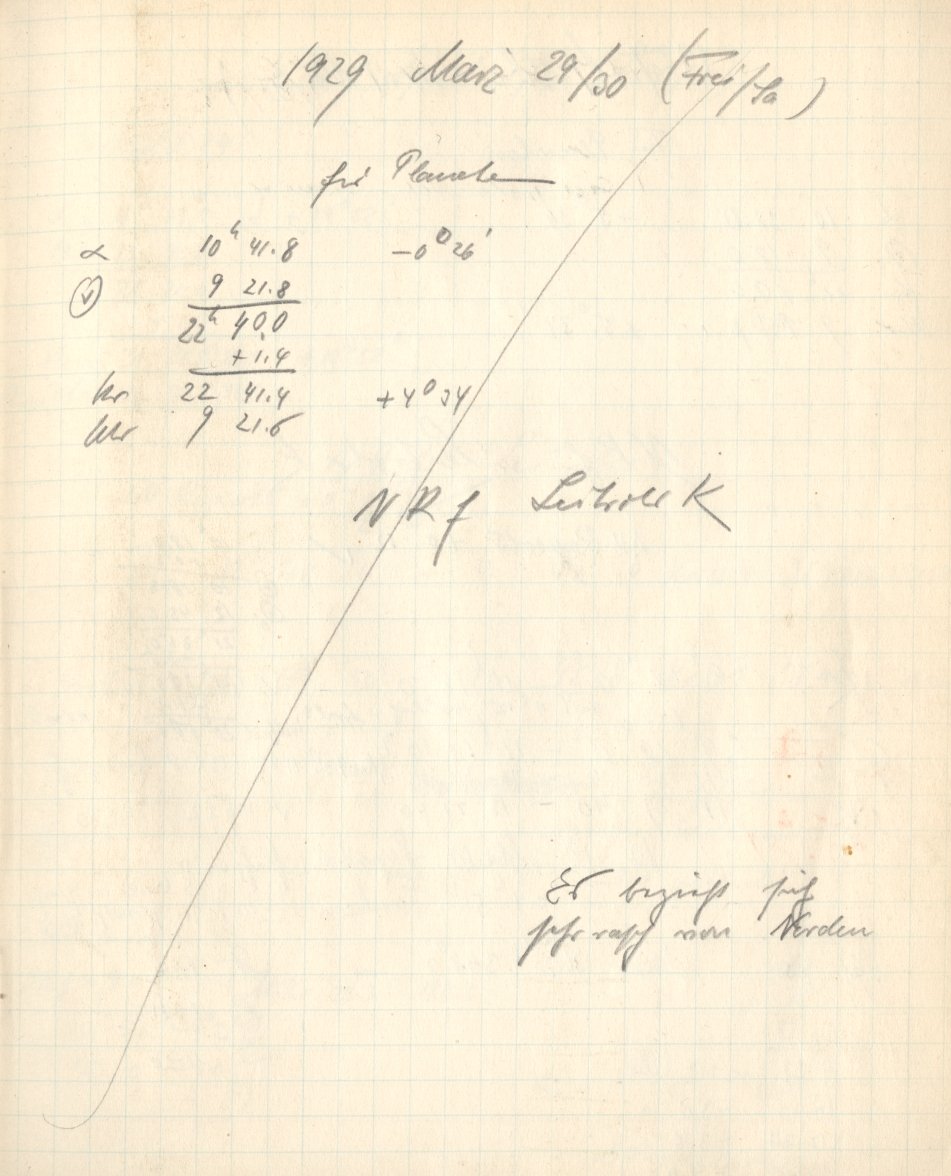 1929 März 29/30 (Frei/Sa)
für Planeten
α 10ʰ 41.8 −0⁰ 26'
9 21.8
22ʰ 40.0
+1.4
Kr 22 41.4 +4⁰ 34
Uhr 9 21.6
NRf Leitrohr K
Es bezieht sich
sehr rasch von Norden